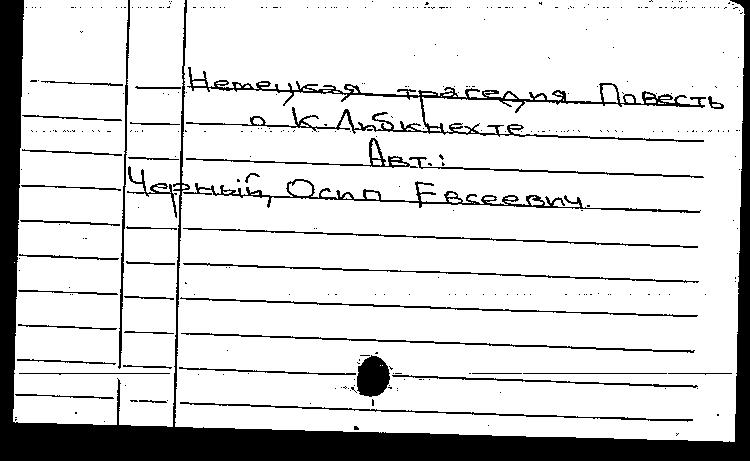 Немецкая трагедия Повесть
о К. Либкнехте
Авт.:
Черный, Осип Евсеевич.